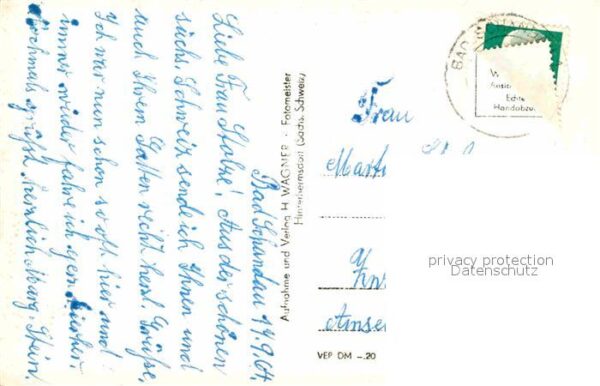 Bad Schandau 14.9.64.
Liebe Frau Stolze! Aus der schönen
sächs. Schweiz sende ich Ihnen und
auch Ihrem Gatten recht herzl. Grüße.
Ich war nun schon so oft hier und
immer wieder fahre ich gern hierher.
Nochmals grüßt herzlich Stein.
Aufnahme und Verlag H. WAGNER · Fotomeister
Hinterhermsdorf (Sächs. Schweiz)
BAD SCHANDAU
W
Echte
Handabzug
Frau
Mart
VEB DM -.20
privacy protection
Datenschutz